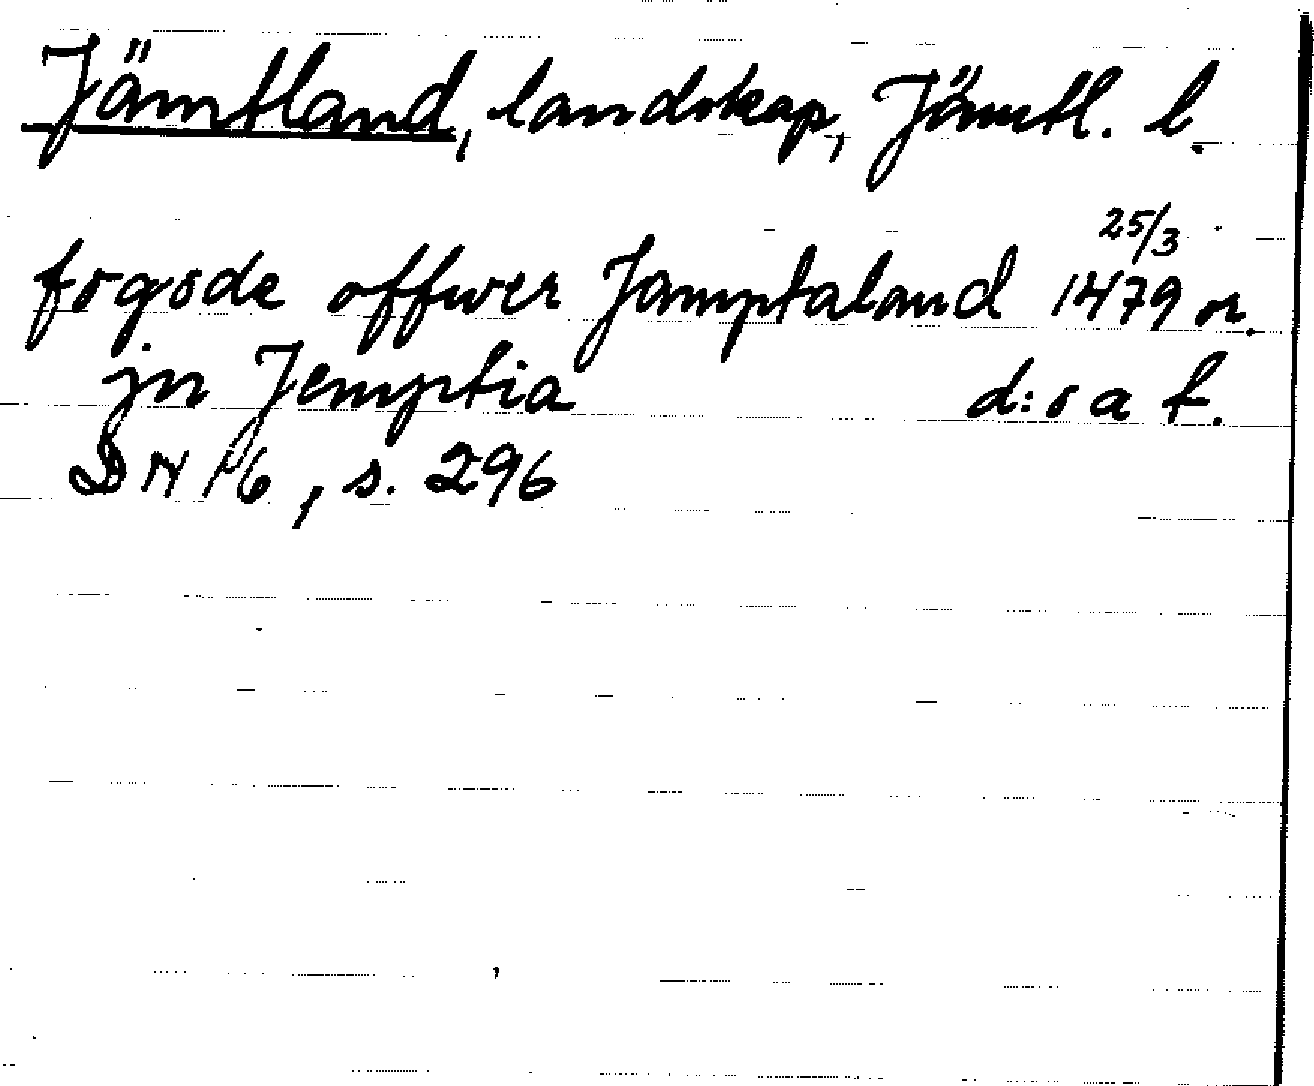 Jämtland, landskap, Jämtl. l.
fogode offwer Jamptaland 25/3 1479 or.
jn Jemptia d:o a f.
DN 16, s. 296